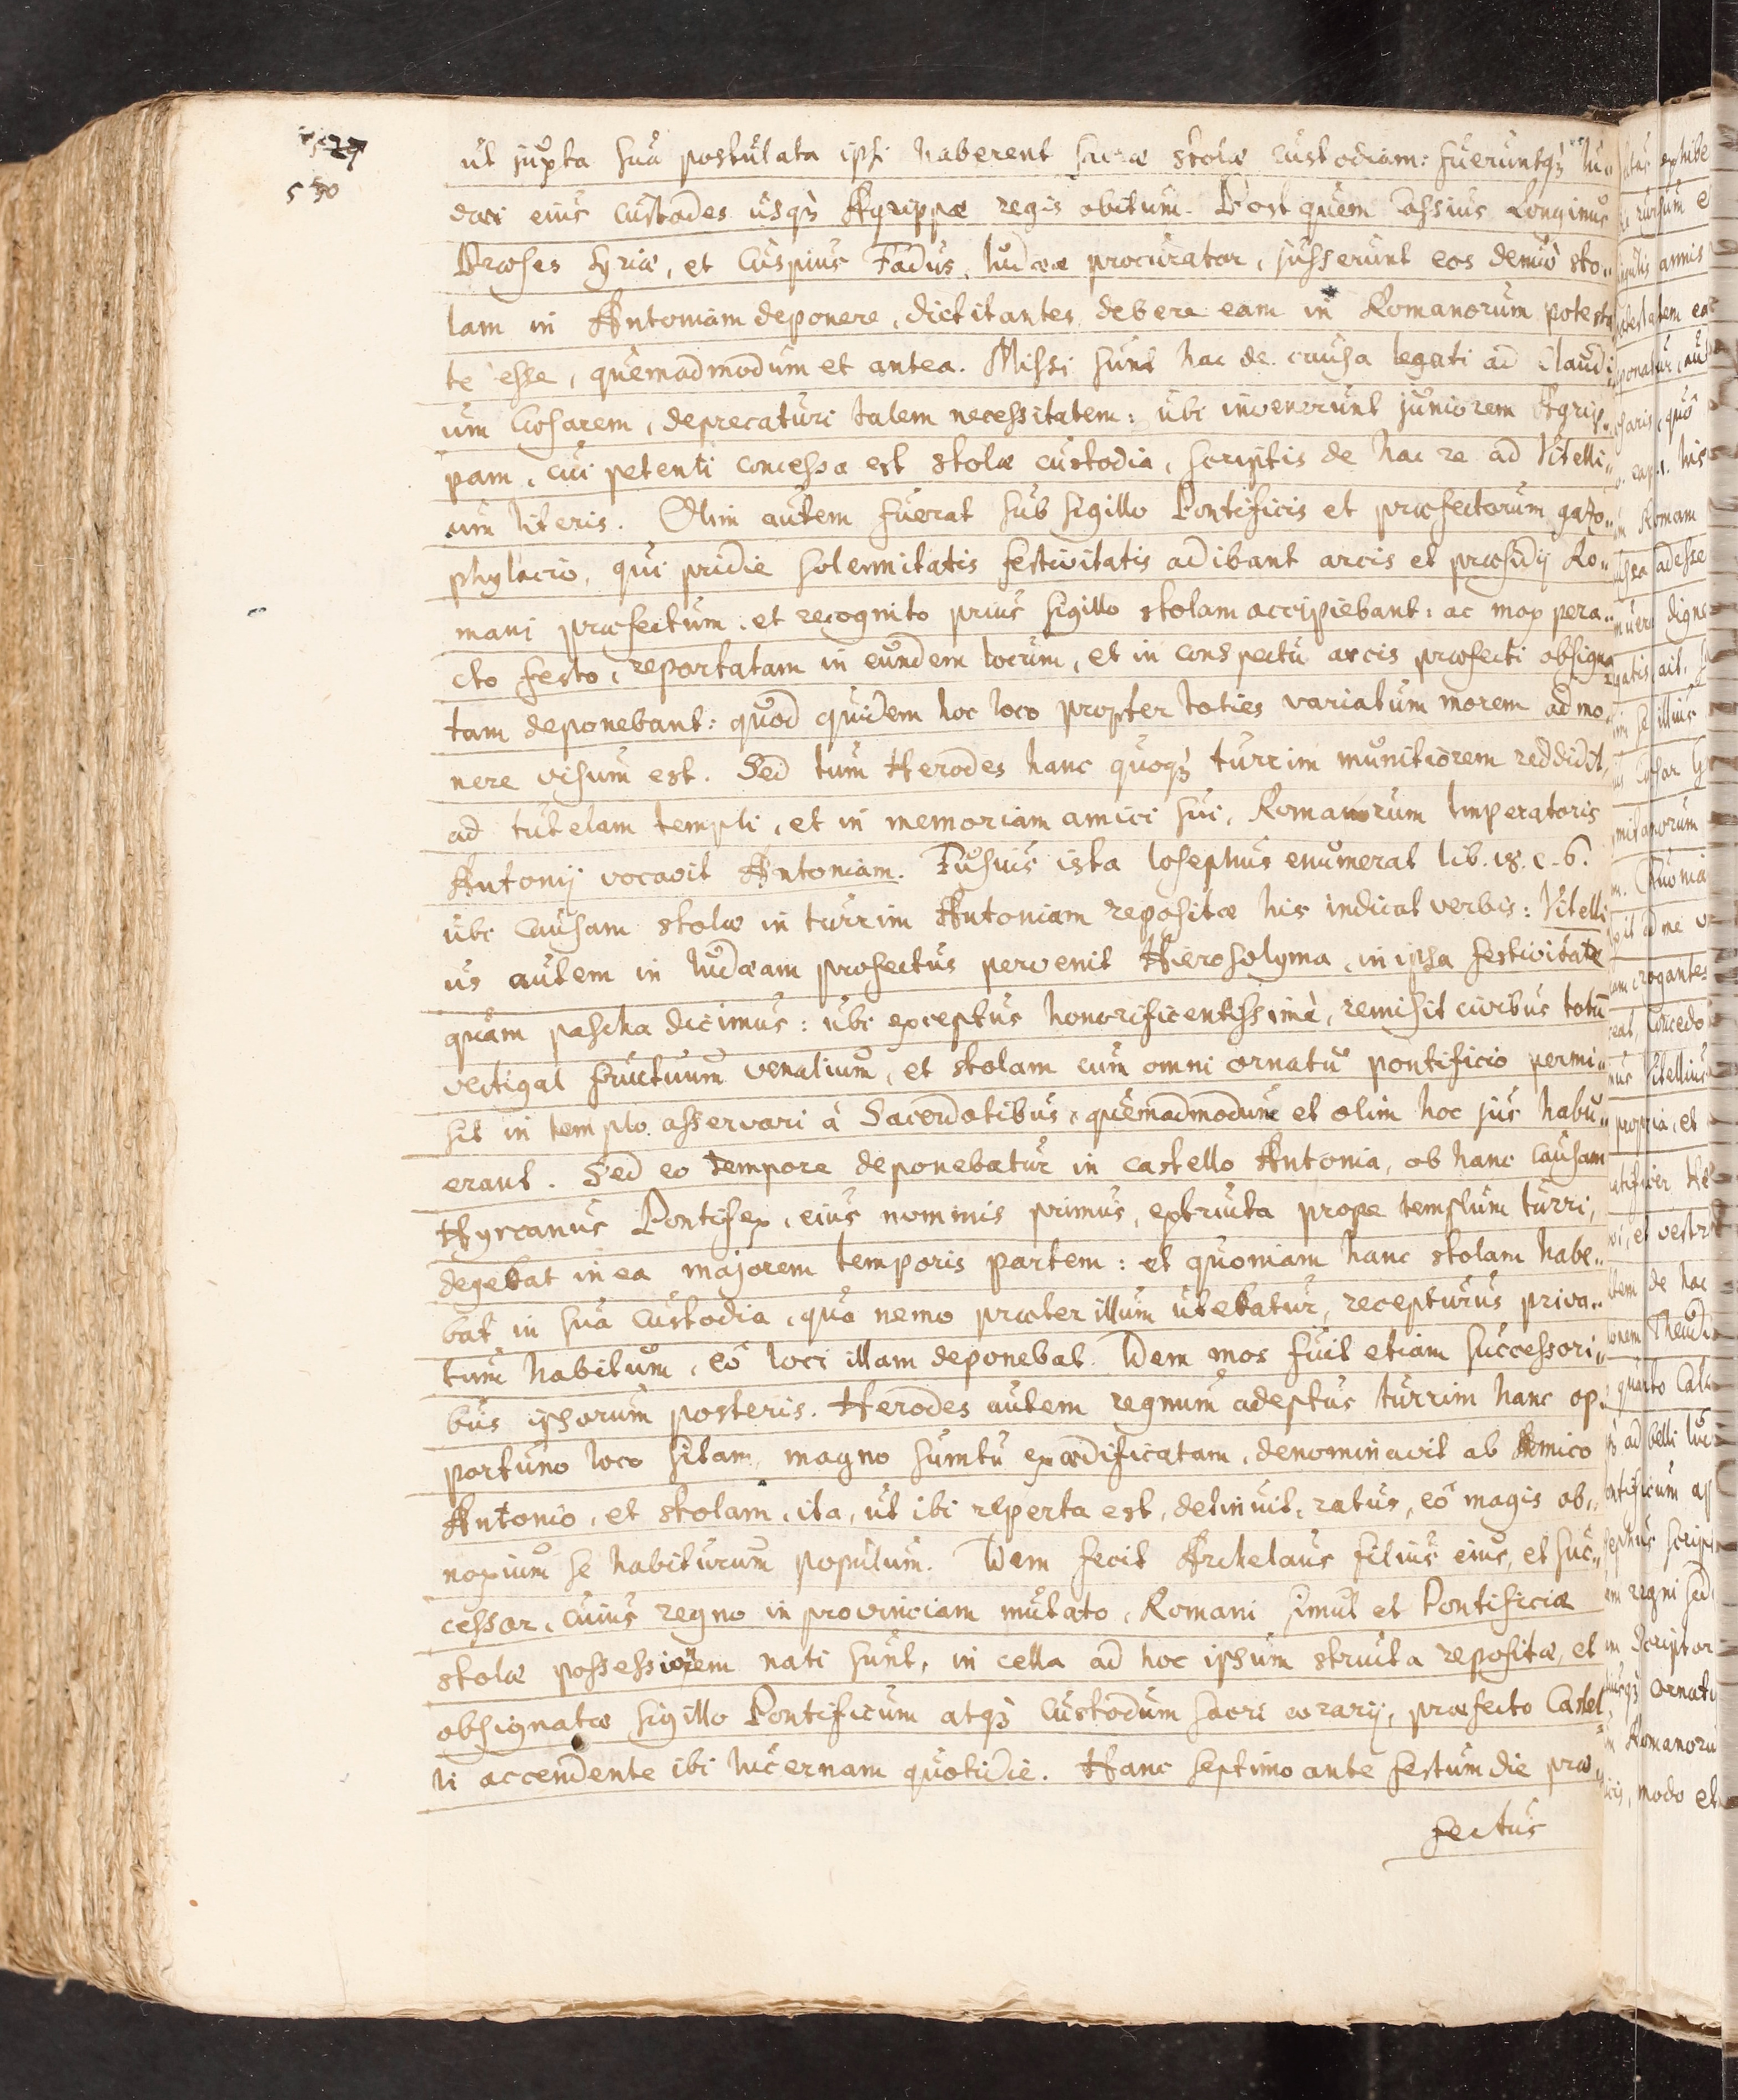 27
530
ut juxta sua postulata ipsi haberent sacræ stolæ custodiam: fueruntqȝ Iu-
dæi eius custodes usqȝ Agrippæ regis obitum. Post quem Cassius Longinus
Præses Syriæ, et Cuspius Fadus, Iudææ procurator, jusserunt eos denuò sto-
lam in Antoniam deponere, dictitantes debere eam in Romanorum potesta
te esse, quemadmodum et antea. Missi sunt hac de causa legati ad Claudi
um Cæsarem, deprecaturi talem necessitatem: ubi invenerunt juniorem Agrip-
pam, cui petenti concessa est stolæ custodia, scriptis de hac re ad Vitelli-
um literis. Olim autem fuerat sub sigillo Pontificis et præfectorum gazo-
phylacio, qui pridie solennitatis festivitatis adibant arcis et præsidij Ro-
mani præfectum, et recognito prius sigillo stolam accipiebant: ac mox pera-
cto festo, reportatam in eundem locum, et in conspectu arcis præfecti obsigna
tam deponebant: quod quidem hoc loco propter toties variatum morem admo-
nere visum est. Sed tum Herodes hanc quoqȝ turrim munitiorem reddidit,
ad tutelam templi, et in memoriam amici sui, Romanorum Imperatoris
Antonij vocavit Antoniam. Fusius ista Iosephus enumerat lib. 18. c. 6.
ubi causam stolæ in turrim Antoniam repositæ his indicat verbis: Vitelli
us autem in Iudæam profectus pervenit Hierosolyma, in ipsa festivitate
quam pascha dicimus: ubi exceptus honorificentissimè, remisit civibus totū
vectigal fructuum venalium, et stolam cum omni ornatu pontificio permi-
sit in templo asservari à Sacerdotibus, quemadmodum et olim hoc jus habu-
erant. Sed eo tempore deponebatur in castello Antonia, ob hanc causam
Hyrcanus Pontifex, eius nominis primus, extructa prope templum turri,
degebat in ea majorem temporis partem: et quoniam hanc stolam habe-
bat in sua custodia, qua nemo præter illum utebatur, recepturus priva-
tum habitum, eò loci illam deponebat. Idem mos fuit etiam successori-
bus ipsorum posteris. Herodes autem regnum adeptus turrim hanc op-
portuno loco sitam, magno sumtu exædificatam, denominavit ab Amico
Antonio, et stolam, ita, ut ibi reperta est, detinuit, ratus, eò magis ob-
noxium se habiturum populum. Idem fecit Archelaus filius eius, et suc-
cessor, cuius regno in provinciam mutato, Romani simul et Pontificiæ
stolæ possessionem nati sunt, in cella ad hoc ipsum structa repositæ, et
obsignatæ sigillo Pontificum atqȝ Custodum sacri ærarij, præfecto Castel
li accendente ibi lucernam quotidie. Hanc septimo ante festum die præ-
fectus